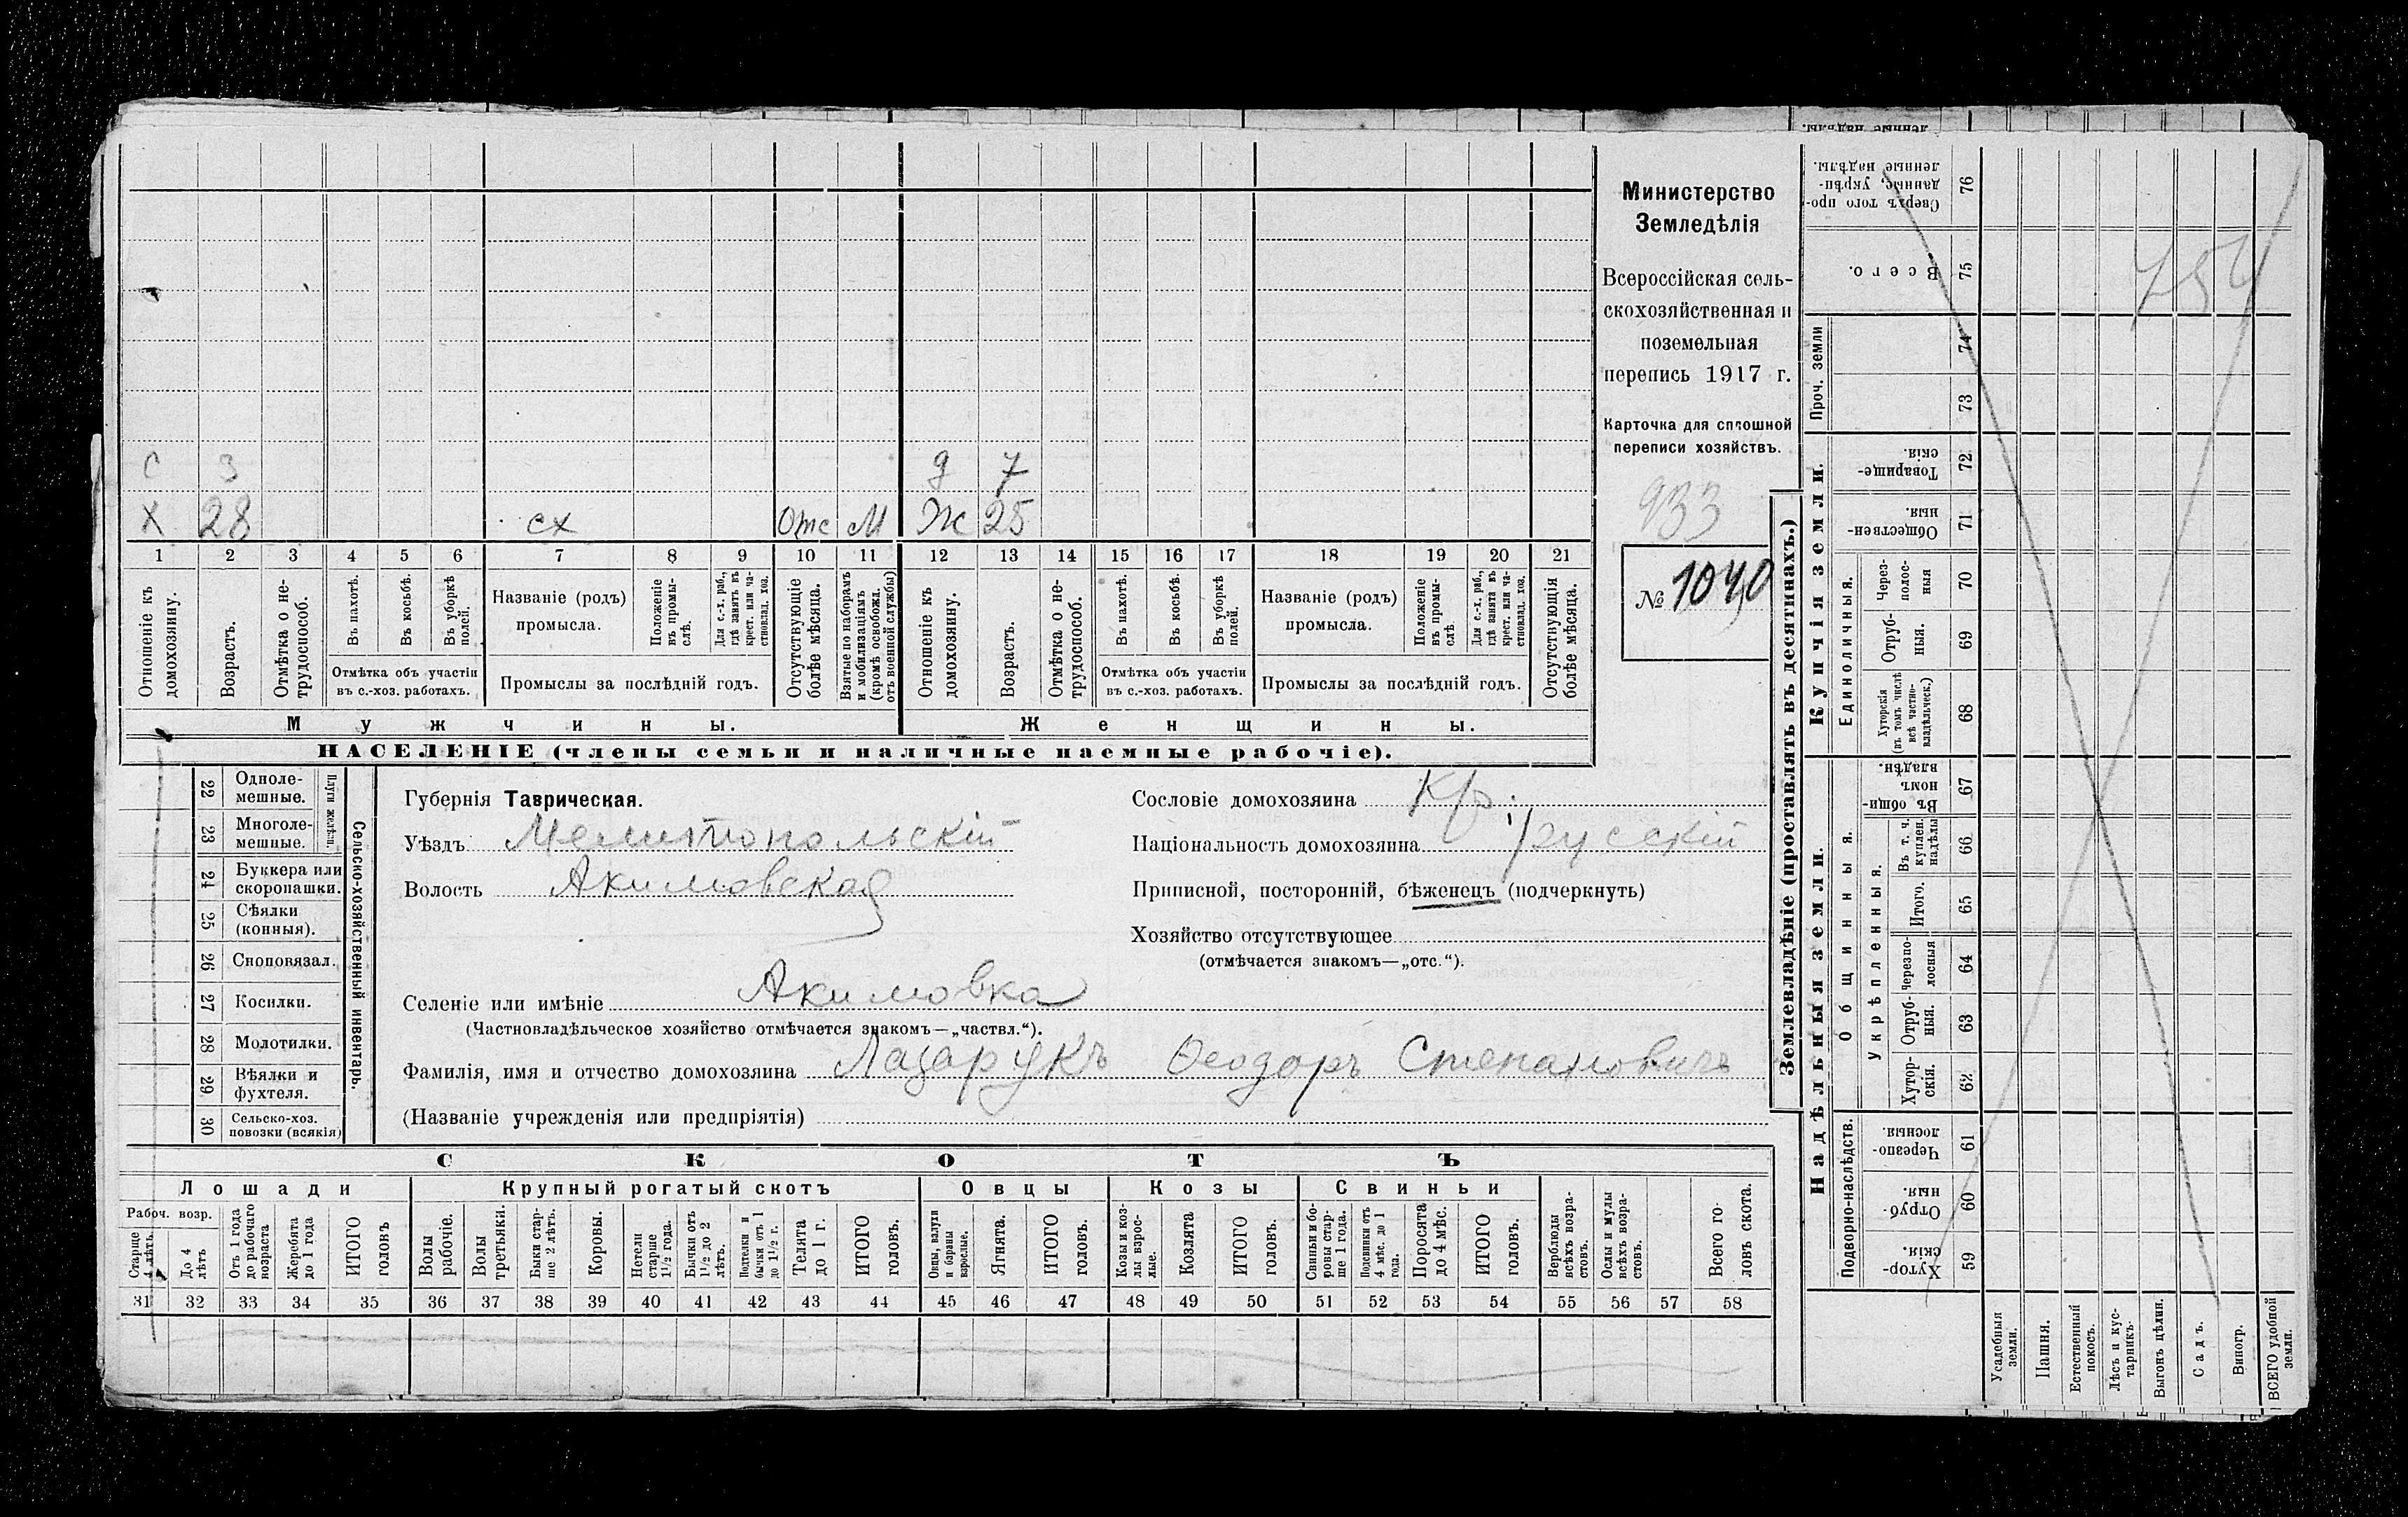 Министерство
Земледѣлія
Всероссійская сель-
скохозяйственная и
поземельная
перепись 1917 г.
Карточка для сплошной
переписи хозяйствъ.
933
№ 1040
с 3 д 7
х 28 сх Отс М Ж 25
1 2 3 4 5 6 7 8 9 10 11 12 13 14 15 16 17 18 19 20 21
Отношеніе къ домохозяину.
Возрастъ.
Отмѣтка о не-трудоспособ.
Въ пахотѣ.
Въ косьбѣ.
Въ уборкѣ полей.
Отмѣтка объ участіи
въ с.-хоз. работахъ.
Названіе (родъ)
промысла.
Положеніе въ промы-слѣ.
Для с.-х. раб., гдѣ занятъ въ крест. или ча-стновлад. хоз.
Промыслы за послѣдній годъ.
Отсутствующіе болѣе мѣсяца.
Взятые по наборамъ и мобилизаціямъ (кромѣ освобожд. отъ военной службы)
Отношеніе къ домохозяину.
Возрастъ.
Отмѣтка о не-трудоспособ.
Въ пахотѣ.
Въ косьбѣ.
Въ уборкѣ полей.
Отмѣтка объ участіи
въ с.-хоз. работахъ.
Названіе (родъ)
промысла.
Положеніе въ промы-слѣ.
Для с.-х. раб., гдѣ занята въ крест. или ча-стновлад. хоз.
Промыслы за послѣдній годъ.
Отсутствующія болѣе мѣсяца.
Мужчины.
Женщины.
НАСЕЛЕНІЕ (члены семьи и наличные наемные рабочіе).
22 Одноле-мешные.
23 Многоле-мешные.
Плуги желѣзн.
24 Буккера или скоропашки.
25 Сѣялки (конныя).
26 Сноповязал.
27 Косилки.
28 Молотилки.
29 Вѣялки и фухтеля.
30 Сельско-хоз. повозки (всякія)
Сельско-хозяйственный инвентарь.
Губернія Таврическая.
Уѣздъ Мелитопольскій
Волость Акимовская
Сословіе домохозяина кр.
Національность домохозяина русскій
Приписной, посторонній, бѣженецъ (подчеркнуть)
Хозяйство отсутствующее
(отмѣчается знакомъ—„отс.“).
Селеніе или имѣніе Акимовка
(Частновладѣльческое хозяйство отмѣчается знакомъ—„частвл.“).
Фамилія, имя и отчество домохозяина Лазарукъ Ѳеодоръ Степановичъ
(Названіе учрежденія или предпріятія)
СКОТЪ
Лошади
Крупный рогатый скотъ
Овцы
Козы
Свиньи
Рабоч. возр.
Старше 4 лѣтъ.
До 4 лѣтъ
Отъ 1 года до рабочаго возраста
Жеребята до 1 года
ИТОГО головъ
Волы рабочіе.
Волы третьяки.
Быки стар-ше 2 лѣтъ.
Коровы.
Нетели старше 1 1/2 года.
Бычки отъ 1 1/2 до 2 лѣтъ.
Подтелки и бычки отъ 1 до 1 1/2 г.
Телята до 1 г.
ИТОГО головъ.
Овцы, валухи и бараны взрослые.
Ягнята.
ИТОГО головъ.
Козы и коз-лы взрос-лые.
Козлята
ИТОГО головъ.
Свиньи и бо-ровы стар-ше 1 года.
Подсвинки отъ 4 мѣс. до 1 года.
Поросята до 4 мѣс.
ИТОГО головъ.
Верблюды всѣхъ возра-стовъ.
Ослы и мулы всѣхъ возра-стовъ.
Всего го-ловъ скота.
31 32 33 34 35 36 37 38 39 40 41 42 43 44 45 46 47 48 49 50 51 52 53 54 55 56 57 58
Землевладѣніе (проставлять въ десятинахъ.)
Купчія земли.
Надѣльныя земли.
Сверхъ того про-данные, укрѣп-ленные надѣлы. 76
Всего. 75
Проч. земли 74 73
Товарище-скія 72
Обществен-ныя. 71
Единоличныя.
Через-полос-ныя 70
Отруб-ныя. 69
Хуторскія (въ томъ числѣ всѣ частно-владѣльческ.) 68
Общинныя.
Въ общи-номъ владѣн. 67
Укрѣпленныя.
Въ т. ч. куплен. надѣлы 66
Итого. 65
Черезпо-лосныя 64
Отруб-ныя. 63
Хутор-скія. 62
Подворно-наслѣдств.
Черезпо-лосныя. 61
Отруб-ныя. 60
Хутор-скія. 59
Усадебныя земли.
Пашня.
Естественный покосъ.
Лѣсъ и кус-тарникъ.
Выгонъ цѣлин.
Садъ.
Виногр.
ВСЕГО удобной земли.